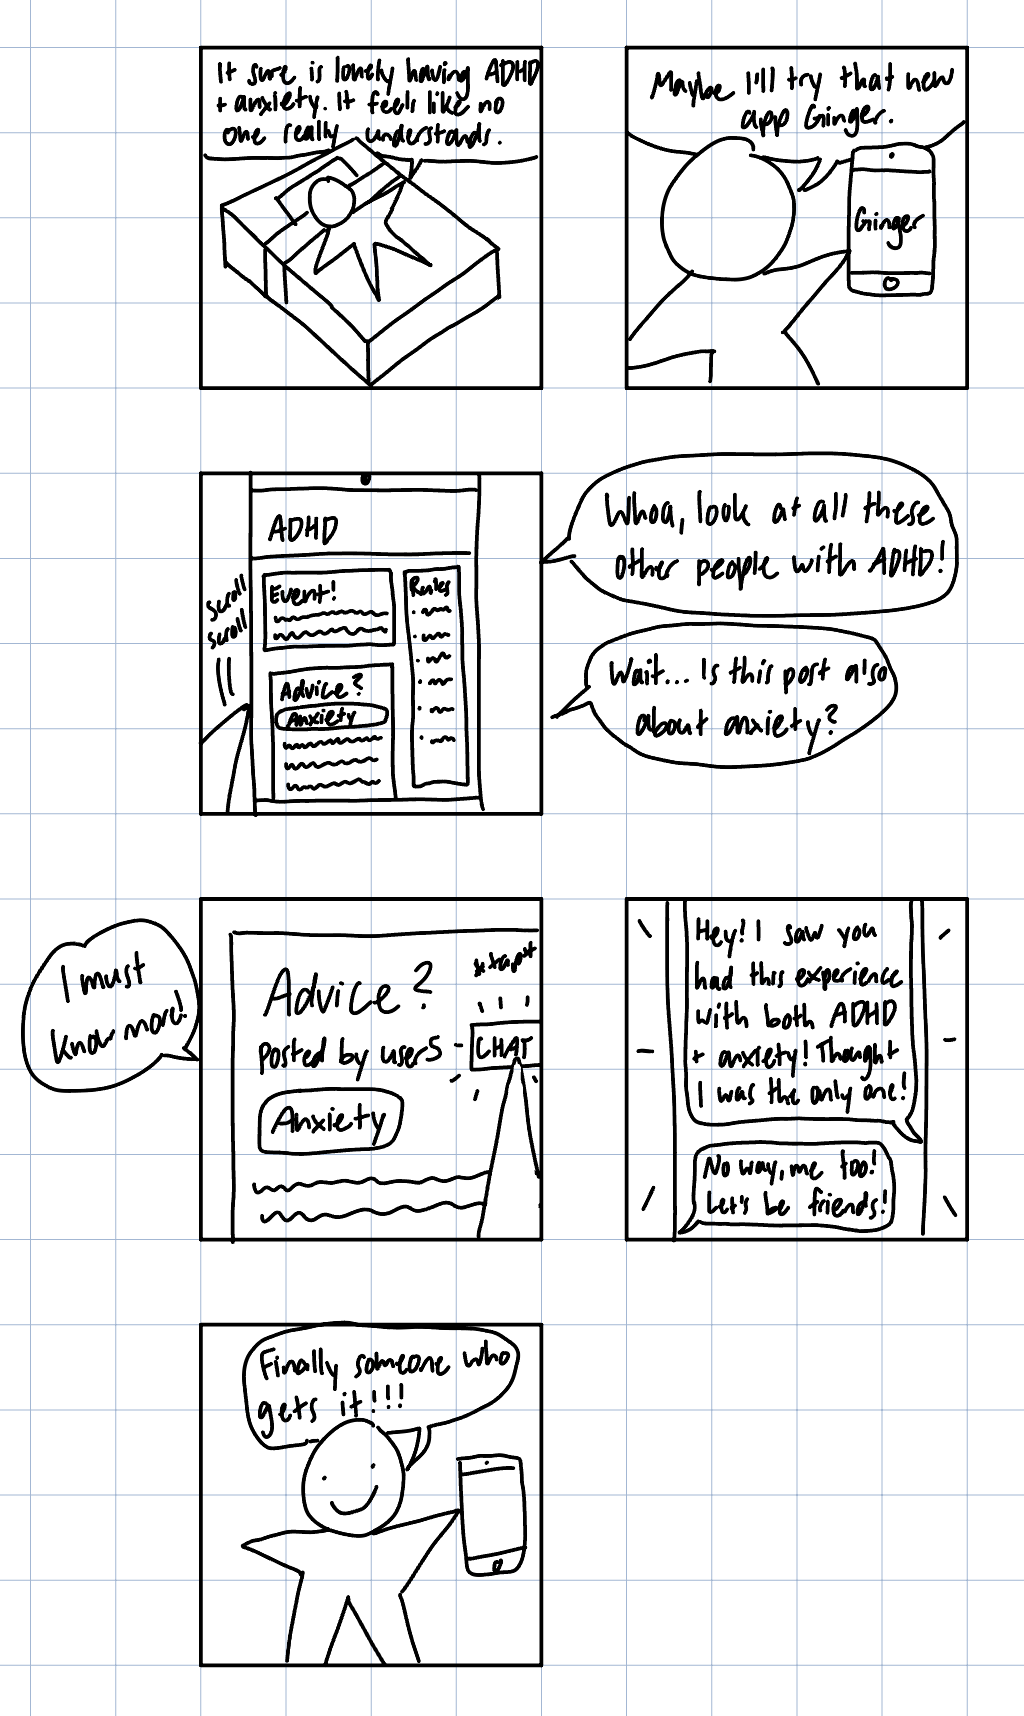 It sure is lonely having ADHD
+ anxiety. It feels like no
one really understands.
Maybe I'll try that new
app Ginger.
Ginger
ADHD
Event!
Rules
scroll
scroll
Advice?
Anxiety
Whoa, look at all these
other people with ADHD!
Wait... Is this post also
about anxiety?
I must
know more!
Advice?
Posted by user5
CHAT
Anxiety
Hey! I saw you
had this experience
with both ADHD
+ anxiety! Thought
I was the only one!
No way, me too!
Let's be friends!
Finally someone who
gets it!!!